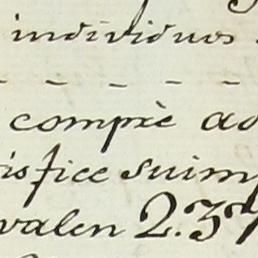 individuos
compré ad
isfice suim
valen 2.37